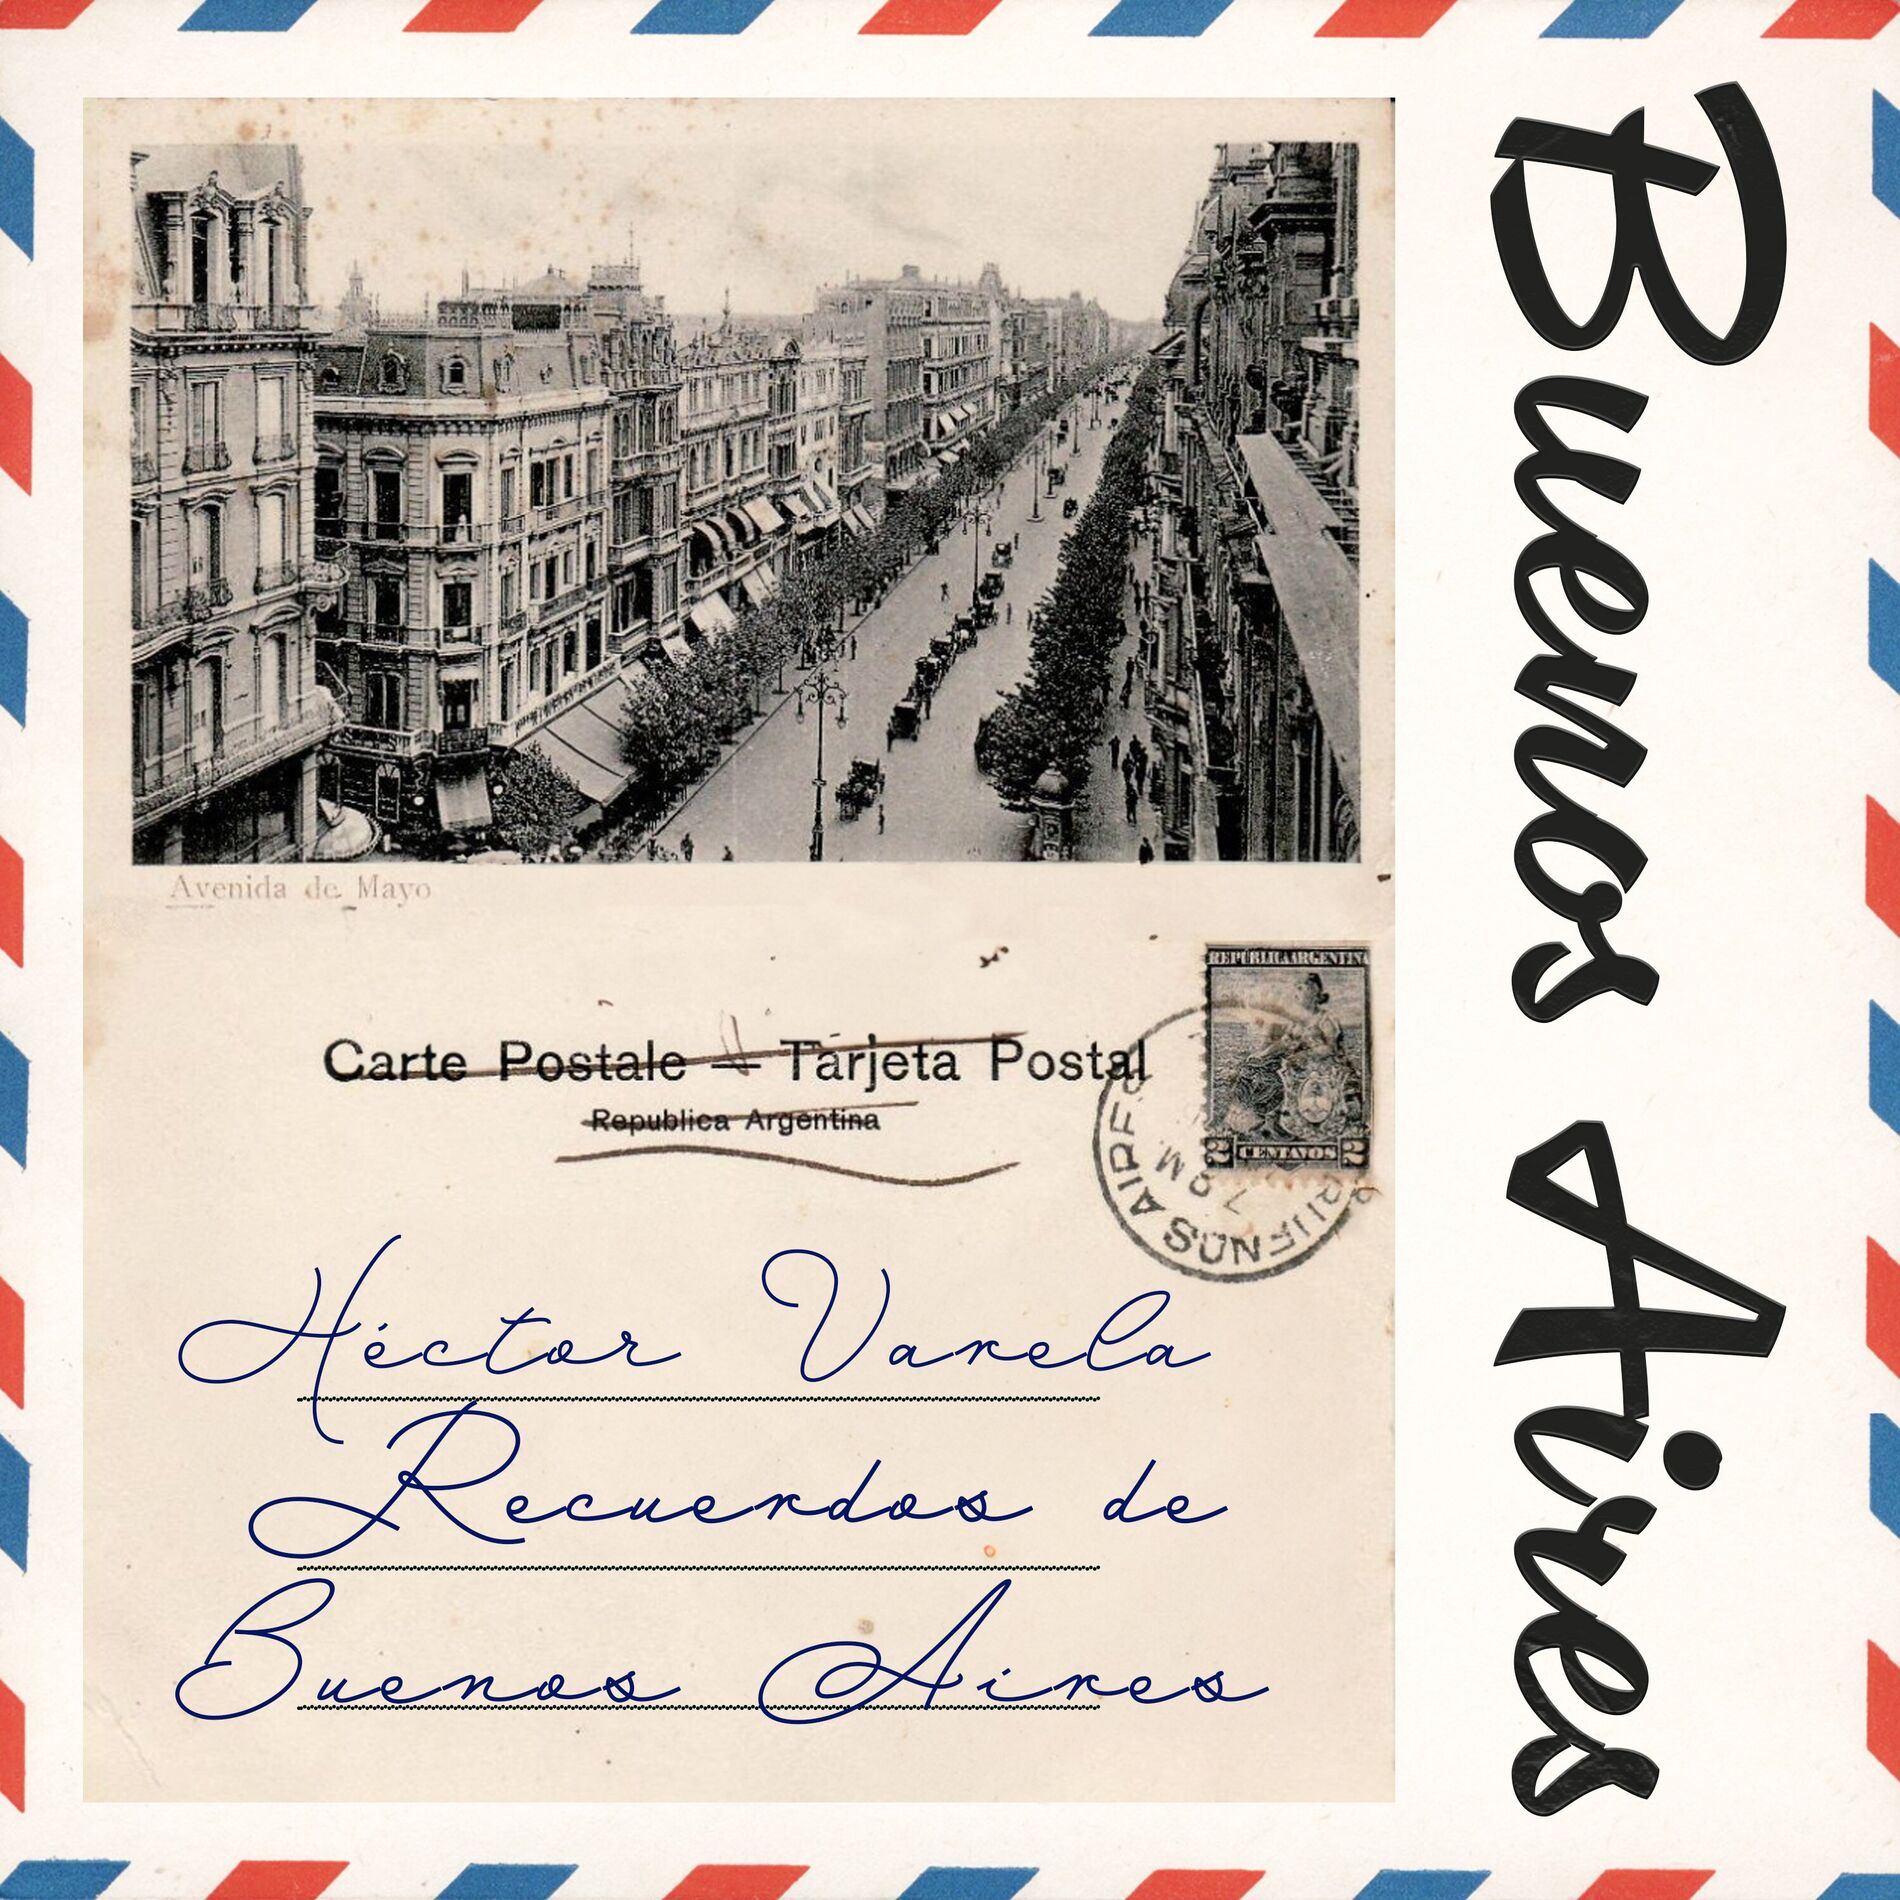 Avenida de Mayo
REPÚBLICA ARGENTINA
2 CENTAVOS 2
Carte Postale — Tarjeta Postal
Republica Argentina
BUENOS AIRES
Héctor Varela
Recuerdos de
Buenos Aires
Buenos Aires